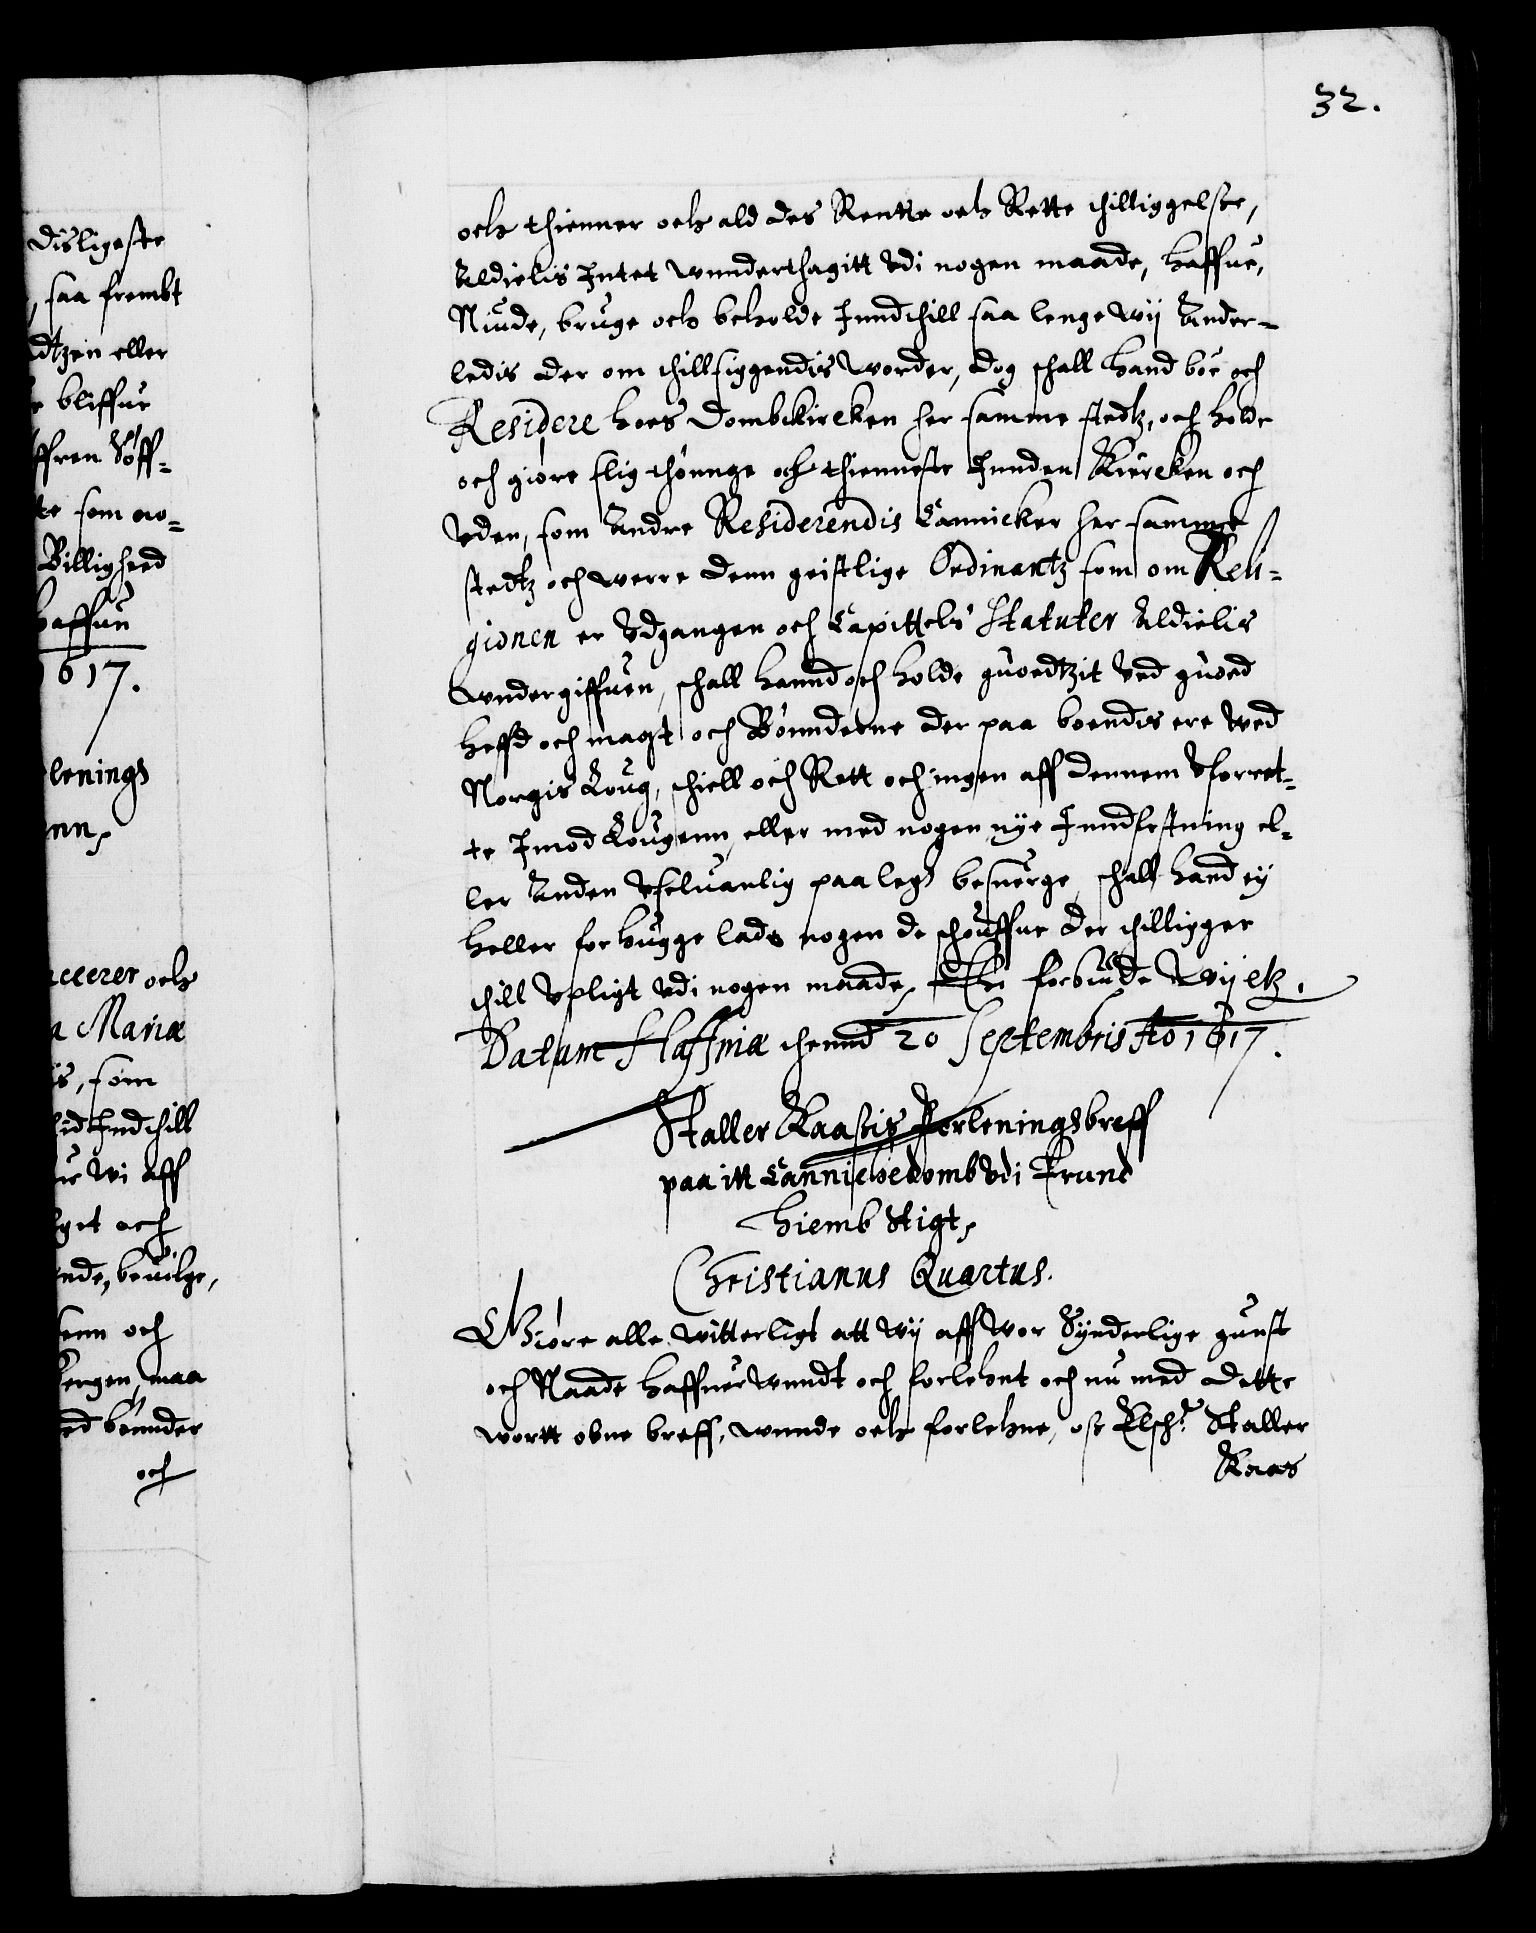 32.
disligeste
saa frembt
dtzen eller
bliffue
ffren Søff-
te som no-
Billigheed
haffuu
1617.
lenings
nn,
och
a Mariæ
s, som
id Indthill
ue Wi aff
get och
nde, beuilge,
enn och
ergen, maa
ed bønnder
och
och thienner och ald des Rentte och Rette thilliggelsse,
Aldielis Intet wnnderthagitt Vdi nogen maade, haffue,
Niude, bruge och beholde Inndthill saa lenge wij Ander-
ledis der om thillsiggendis worder, dog schall hand boe och
Residere hoes Dombkircken her samme stedtz, och holde
och giøre slig thiønnge och thienneste Innden Kiercken och
Vden, som Andre Residerendis Cannicker her samme
stedtz och werre denn geistlige Ordinantz som om Reli-
gionen er Vdgangen och Capittels Statuter Aldielis
wndergiffuen, schall hannd och holde guodtzit Ved guoed
heffd och magt och Bønnderne der paa boendis ere Wed
Norgis Loug, schiell och Rett och ingen aff dennem Vforret-
te Imod Lougenn, eller med nogen nye Inndfestning el-
ler Anden Vseluanlig paaleg besuerge, schall hand ej
heller forhugge lade nogen de schouffue der thilligger
thill Vpligt Vdi nogen maade, Thi forbiude Wij etz.
Datum Haffniæ thennd 20 Septembris Ao 1617.
Staller Kaasis Forleningsbreff
paa itt Cannichedomb Vdi Trund
hiemb Stigt,
Christianus Quartus.
Giøre alle witterligt att wij aff wor Synderlige gunst
och Naade haffuer wnndt och forlehnt och nu med dette
wortt obne breff, wnnde och forlehne, oss Elsch: Staller
Kaas